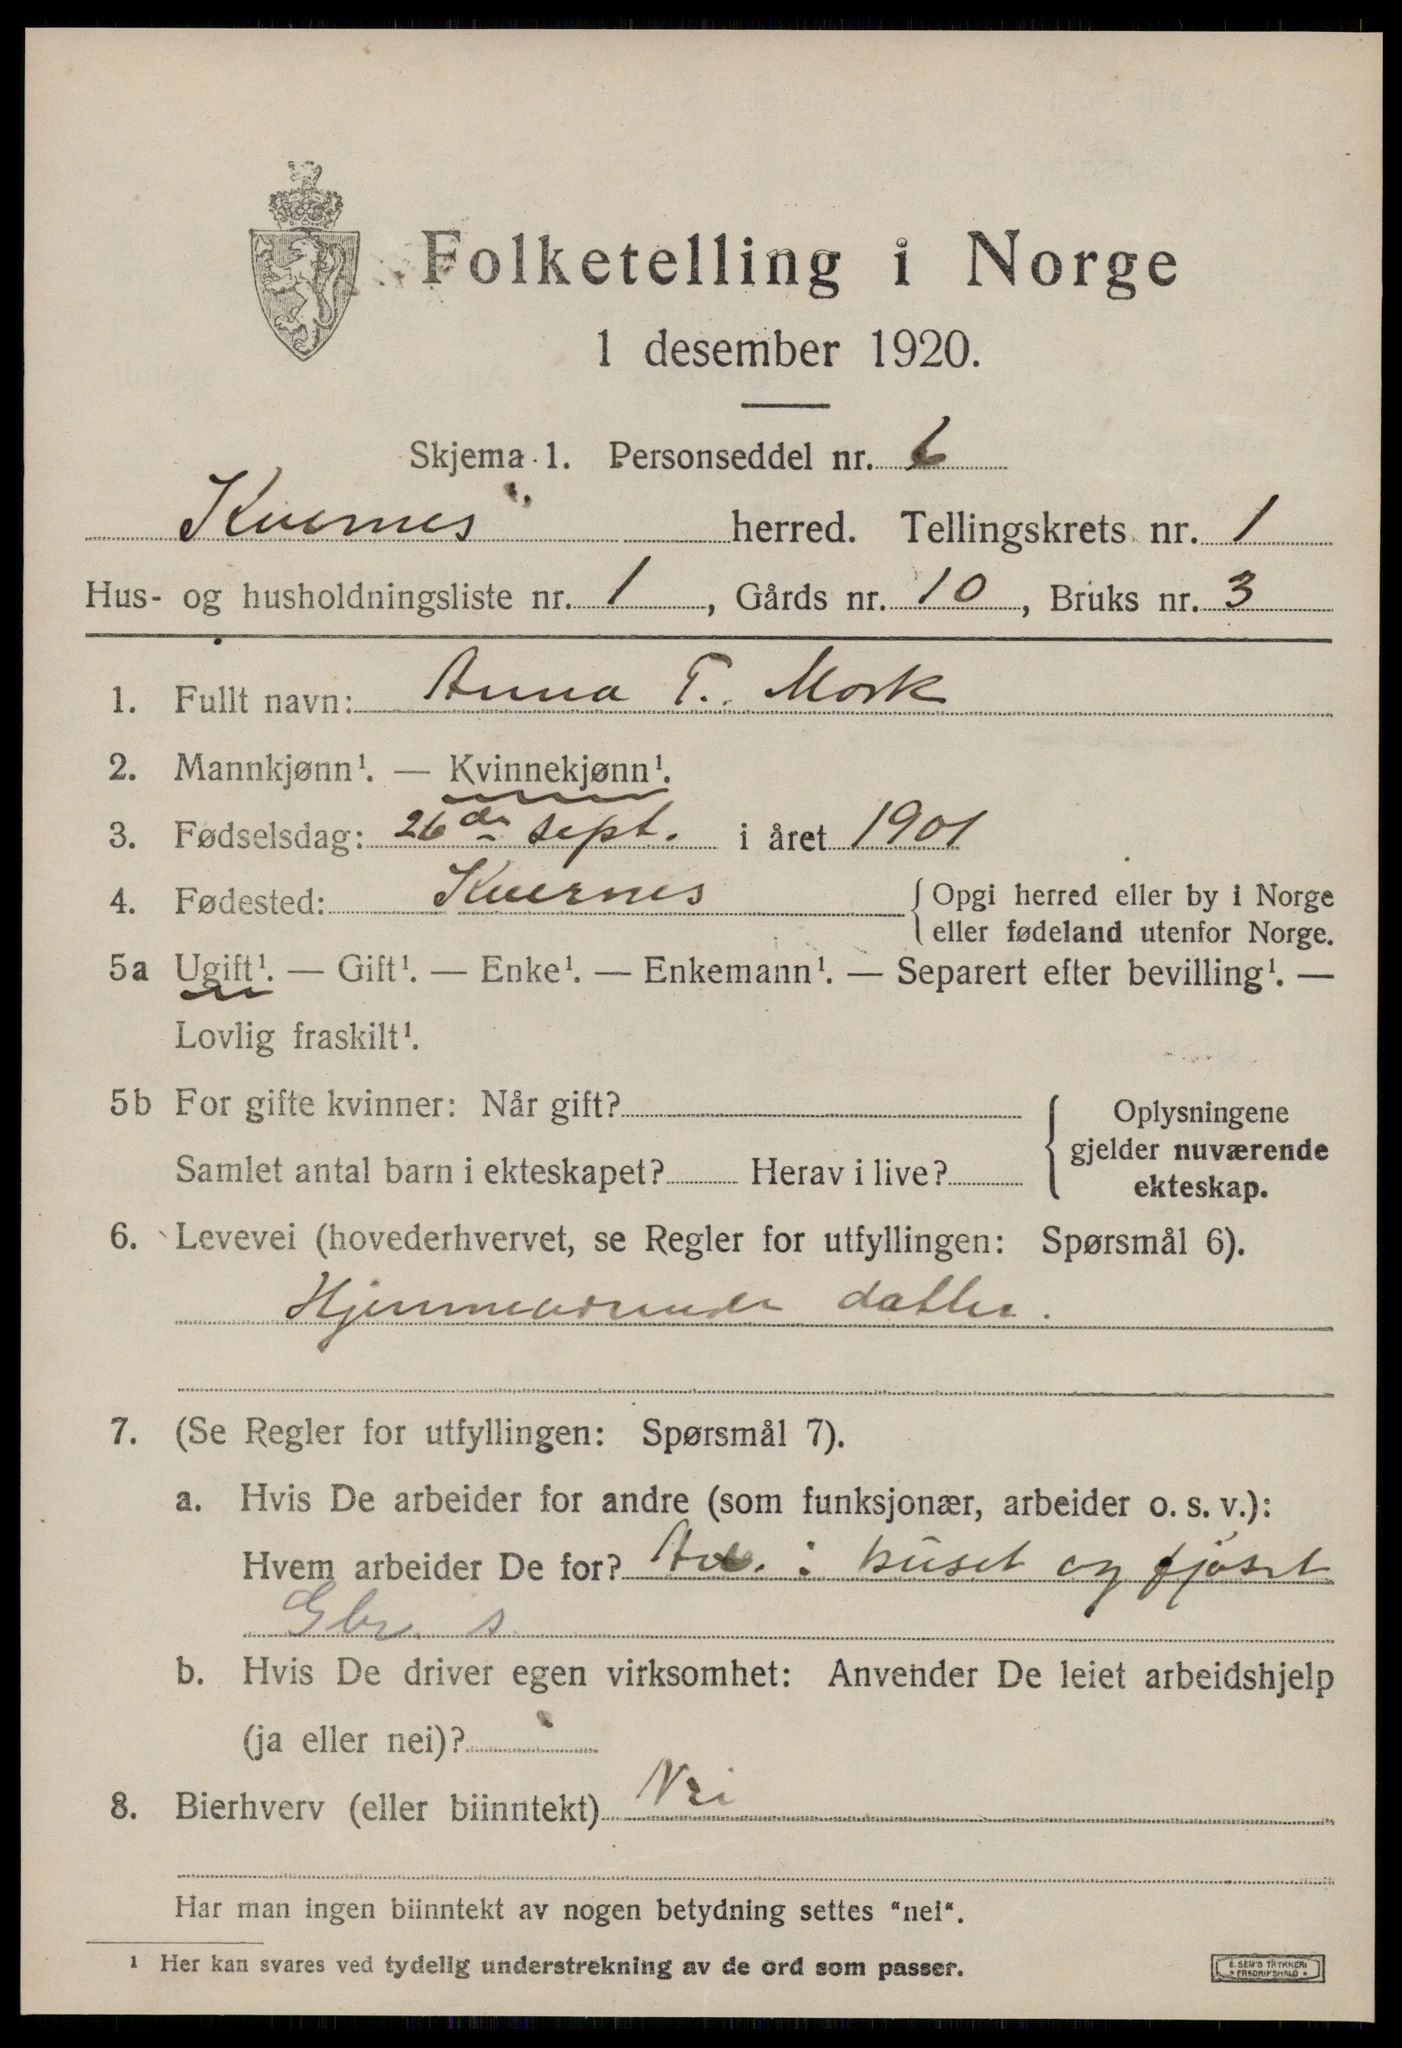 Folketelling i Norge
1 desember 1920.
Skjema 1. Personseddel nr. 6
Kvernes herred. Tellingskrets nr. 1
Hus- og husholdningsliste nr. 1, Gårds nr. 10, Bruks nr. 3
1. Fullt navn: Anna T. Mork
2. Mannkjønn¹. — Kvinnekjønn¹.
3. Fødselsdag: 26de sept. i året 1901
4. Fødested: Kvernes { Opgi herred eller by i Norge
eller fødeland utenfor Norge.
5a Ugift¹. — Gift¹. — Enke¹. — Enkemann¹. — Separert efter bevilling¹. —
Lovlig fraskilt¹.
5b For gifte kvinner: Når gift? { Oplysningene
gjelder nuværende
Samlet antal barn i ekteskapet? Herav i live? ekteskap.
6. Levevei (hovederhvervet, se Regler for utfyllingen: Spørsmål 6).
Hjemmeværende datter.
7. (Se Regler for utfyllingen: Spørsmål 7).
a. Hvis De arbeider for andre (som funksjonær, arbeider o. s. v.):
Hvem arbeider De for? i huset og fjøset
Gbr. s.
b. Hvis De driver egen virksomhet: Anvender De leiet arbeidshjelp
(ja eller nei)?
8. Bierhverv (eller biinntekt) Nei
Har man ingen biinntekt av nogen betydning settes "nei".
¹ Her kan svares ved tydelig understrekning av de ord som passer.
E. SEM'S TRYKKERI
FREDRIKSHALD